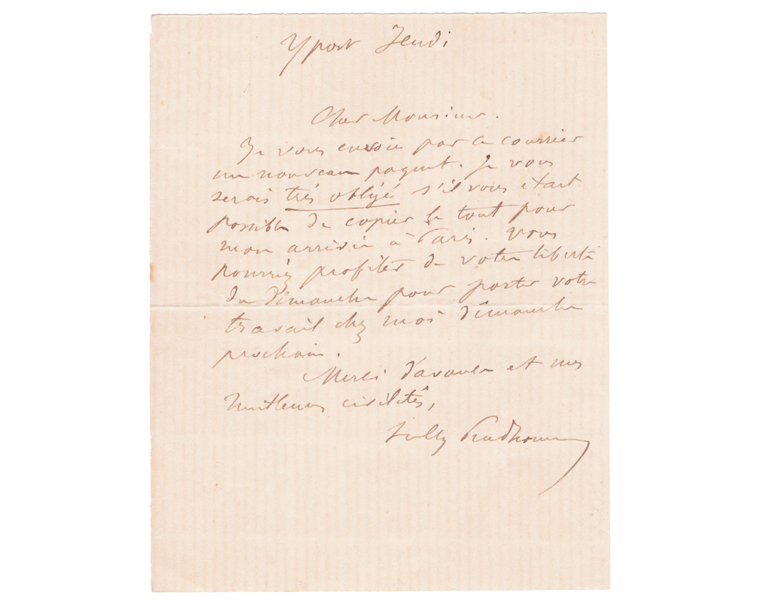 Yport Jeudi
Cher Monsieur.
Je vous envoie par ce courrier
un nouveau paquet. Je vous
serais très obligé s'il vous était
possible de copier le tout pour
mon arrivée à Paris. Vous
pourriez profiter de votre liberté
du dimanche pour porter votre
travail chez moi dimanche
prochain.
Merci d'avance et mes
meilleures civilités,
Sully Prudhomme